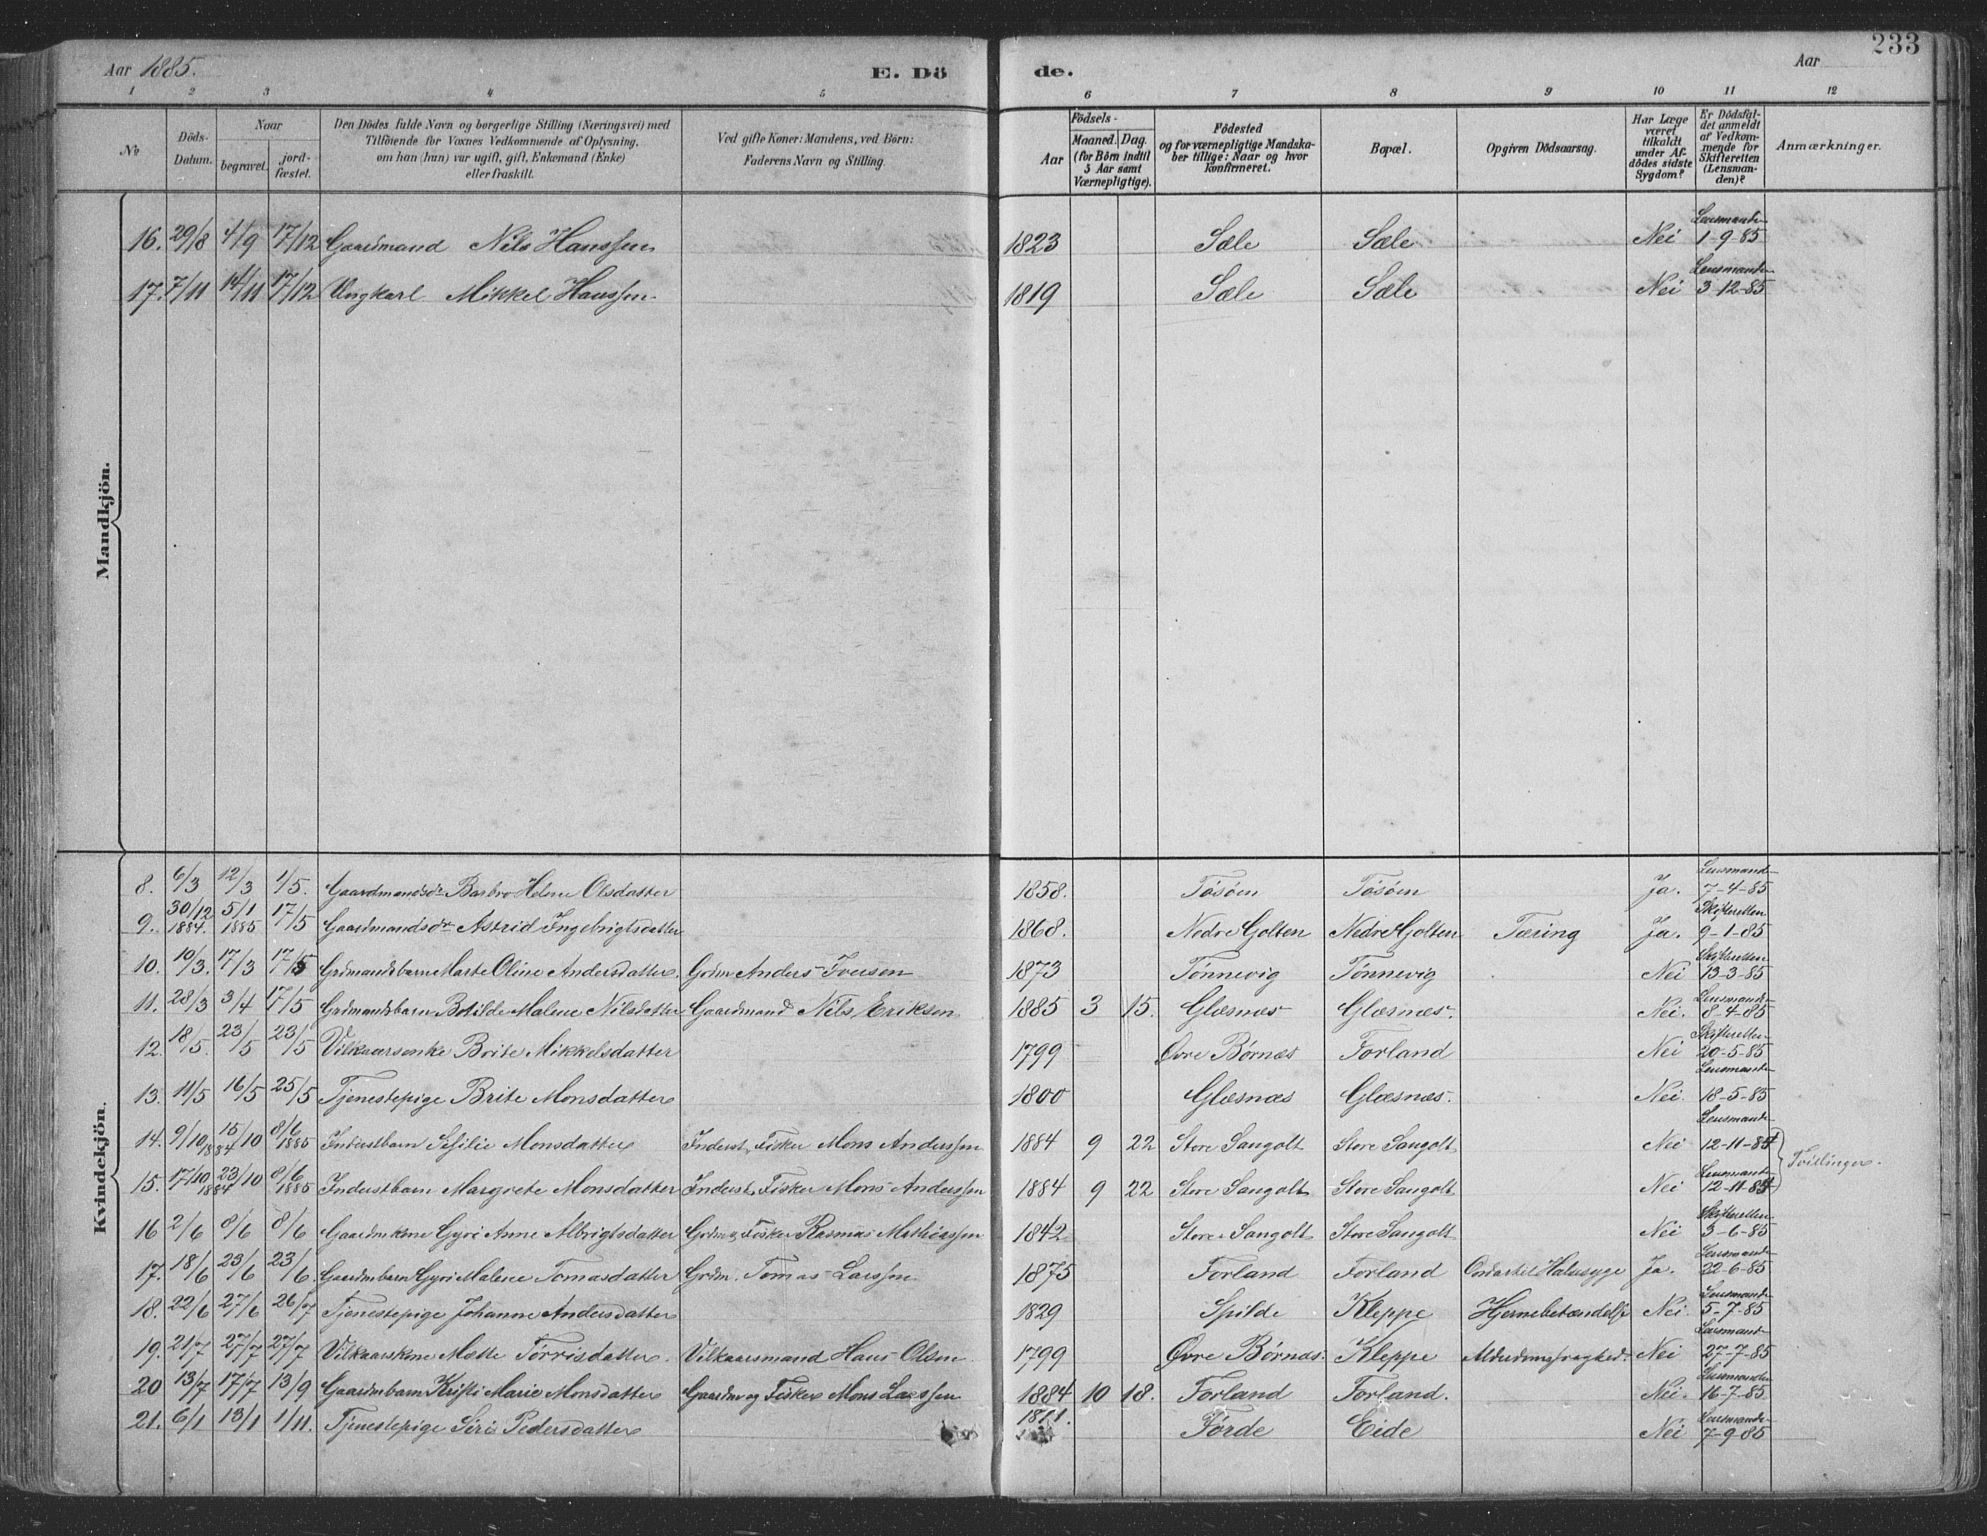 233
Aar 1885.
E. Dö
de.
Aar
1 2 3 4 5 6 7 8 9 10 11 12
No
Döds-Datum.
Naar
begravet. jord-fæstet.
Den Dödes fulde Navn og borgerlige Stilling (Næringsvei) med
Tilföiende for Voxnes Vedkommende af Oplysning,
om han (hun) var ugift, gift, Enkemand (Enke)
eller fraskilt.
Ved gifte Koner: Mandens, ved Börn:
Faderens Navn og Stilling.
Födsels-
Aar
Maaned. Dag.
(for Börn indtil
5 Aar samt
Værnepligtige).
Födested
og for værnepligtige Mandska-
ber tillige: Naar og hvor
konfirmeret.
Bopæl.
Opgiven Dödsaarsag.
Har Læge
været
tilkaldt
under Af-
dödes sidste
Sygdom?
Er Dödsfal-
det anmeldt
af Vedkom-
mende for
Skifteretten
(Lensman-
den)?
Anmærkninger.
Mandkjön.
16. 29/8 4/9 17/12 Gaardmand Nils Hanssen 1823 Sæle Sæle Nei Lensmande 1-9-85
17. 7/11 14/11 17/12 Ungkarl Mikkel Hanssen 1819 Sæle Sæle Nei Lensmande 3-12-85
Kvindekjön.
8. 6/3 12/3 1/5. Gaardmandsdr Barbro Helene Olsdatter 1858. Tösöen Tösöen Ja. Lensmande 7-4-85
9. 30/12 1884. 5/1 1885 17/5 Gaardmandsdr Astrid Ingebrigtsdatter 1868. Nedre Golten Nedre Golten Tæring Ja. Skifteretten 9-1-85
10. 10/3. 17/3 17/5 Grdmandsbarn Marte Oline Andersdatter. Grdm Anders Iversen 1873 Tönnevig Tönnevig Nei Skifteretten 13-3-85
11. 28/3 3/4 17/5 Grdmandsbarn Botilde Malene Nilsdatter Gaardmand Nils Eriksen 1885 3 15. Glæsnæs Glæsnæs. Nei. Lensmande 8-4-85
12. 18/5. 23/5 23/5 Vilkaarsenke Brite Mikkelsdatter 1799 Övre Börnæs Forland Nei Skifteretten 20-5-85
13. 11/5 16/5 25/5 Tjenestepige Brite Monsdatter 1800 Glæsnæs Glæsnæs. Nei. Lensmande 18-5-85
14. 9/10 1884 15/10 8/6 1885 Inderstbarn Sesilie Monsdatter Inderst, Fisker Mons Anderssen 1884 9 22 Store Sangolt Store Sangolt Nei Lensmande 12-11-84
15. 17/10 1884 23/10 8/6 1885 Inderstbarn Margrete Monsdatter Inderst, Fisker Mons Anderssen 1884 9 22 Store Sangolt Store Sangolt Nei Lensmande 12-11-84 Tvillinger.
16 2/6 8/6 8/6 Gaardmkone Gyri Anne Albrigtsdatter Grdm, Fisker Rasmus Mathiassen 1842 Store Sangolt Store Sangolt Nei Skifteretten 3-6-85
17. 18/6 23/6 23/6 Gaardmbarn Gyri Malene Tomasdatter Grdm. Tomas Larssen 1875 Forland Forland Ondartet Halssyge Ja. Lensmande 22-6-85
18. 22/6 27/6 26/7 Tjenestepige Johanne Andersdatter 1829 Spilde Kleppe Hjernebetændelse Nei. Lensmande 5-7-85
19. 21/7 27/7 27/7 Vilkaarskone Mette Törrisdatter. Vilkaarsmand Hans Olsen 1799 Övre Börnæs. Kleppe Alderdomssvaghed. Nei Lensmande 27-7-85
20 13/7 17/7 13/9 Gaardmbarn Kristi Marie Monsdatter Gaardm og Fisker Mons Larssen 1884 10 18. Forland Forland. Nei. Lensmande 16-7-85
21. 6/1 13/1 1/11. Tjenestepige Siri Pedersdatter 1811. Förde Eide Nei Lensmande 7-9-85